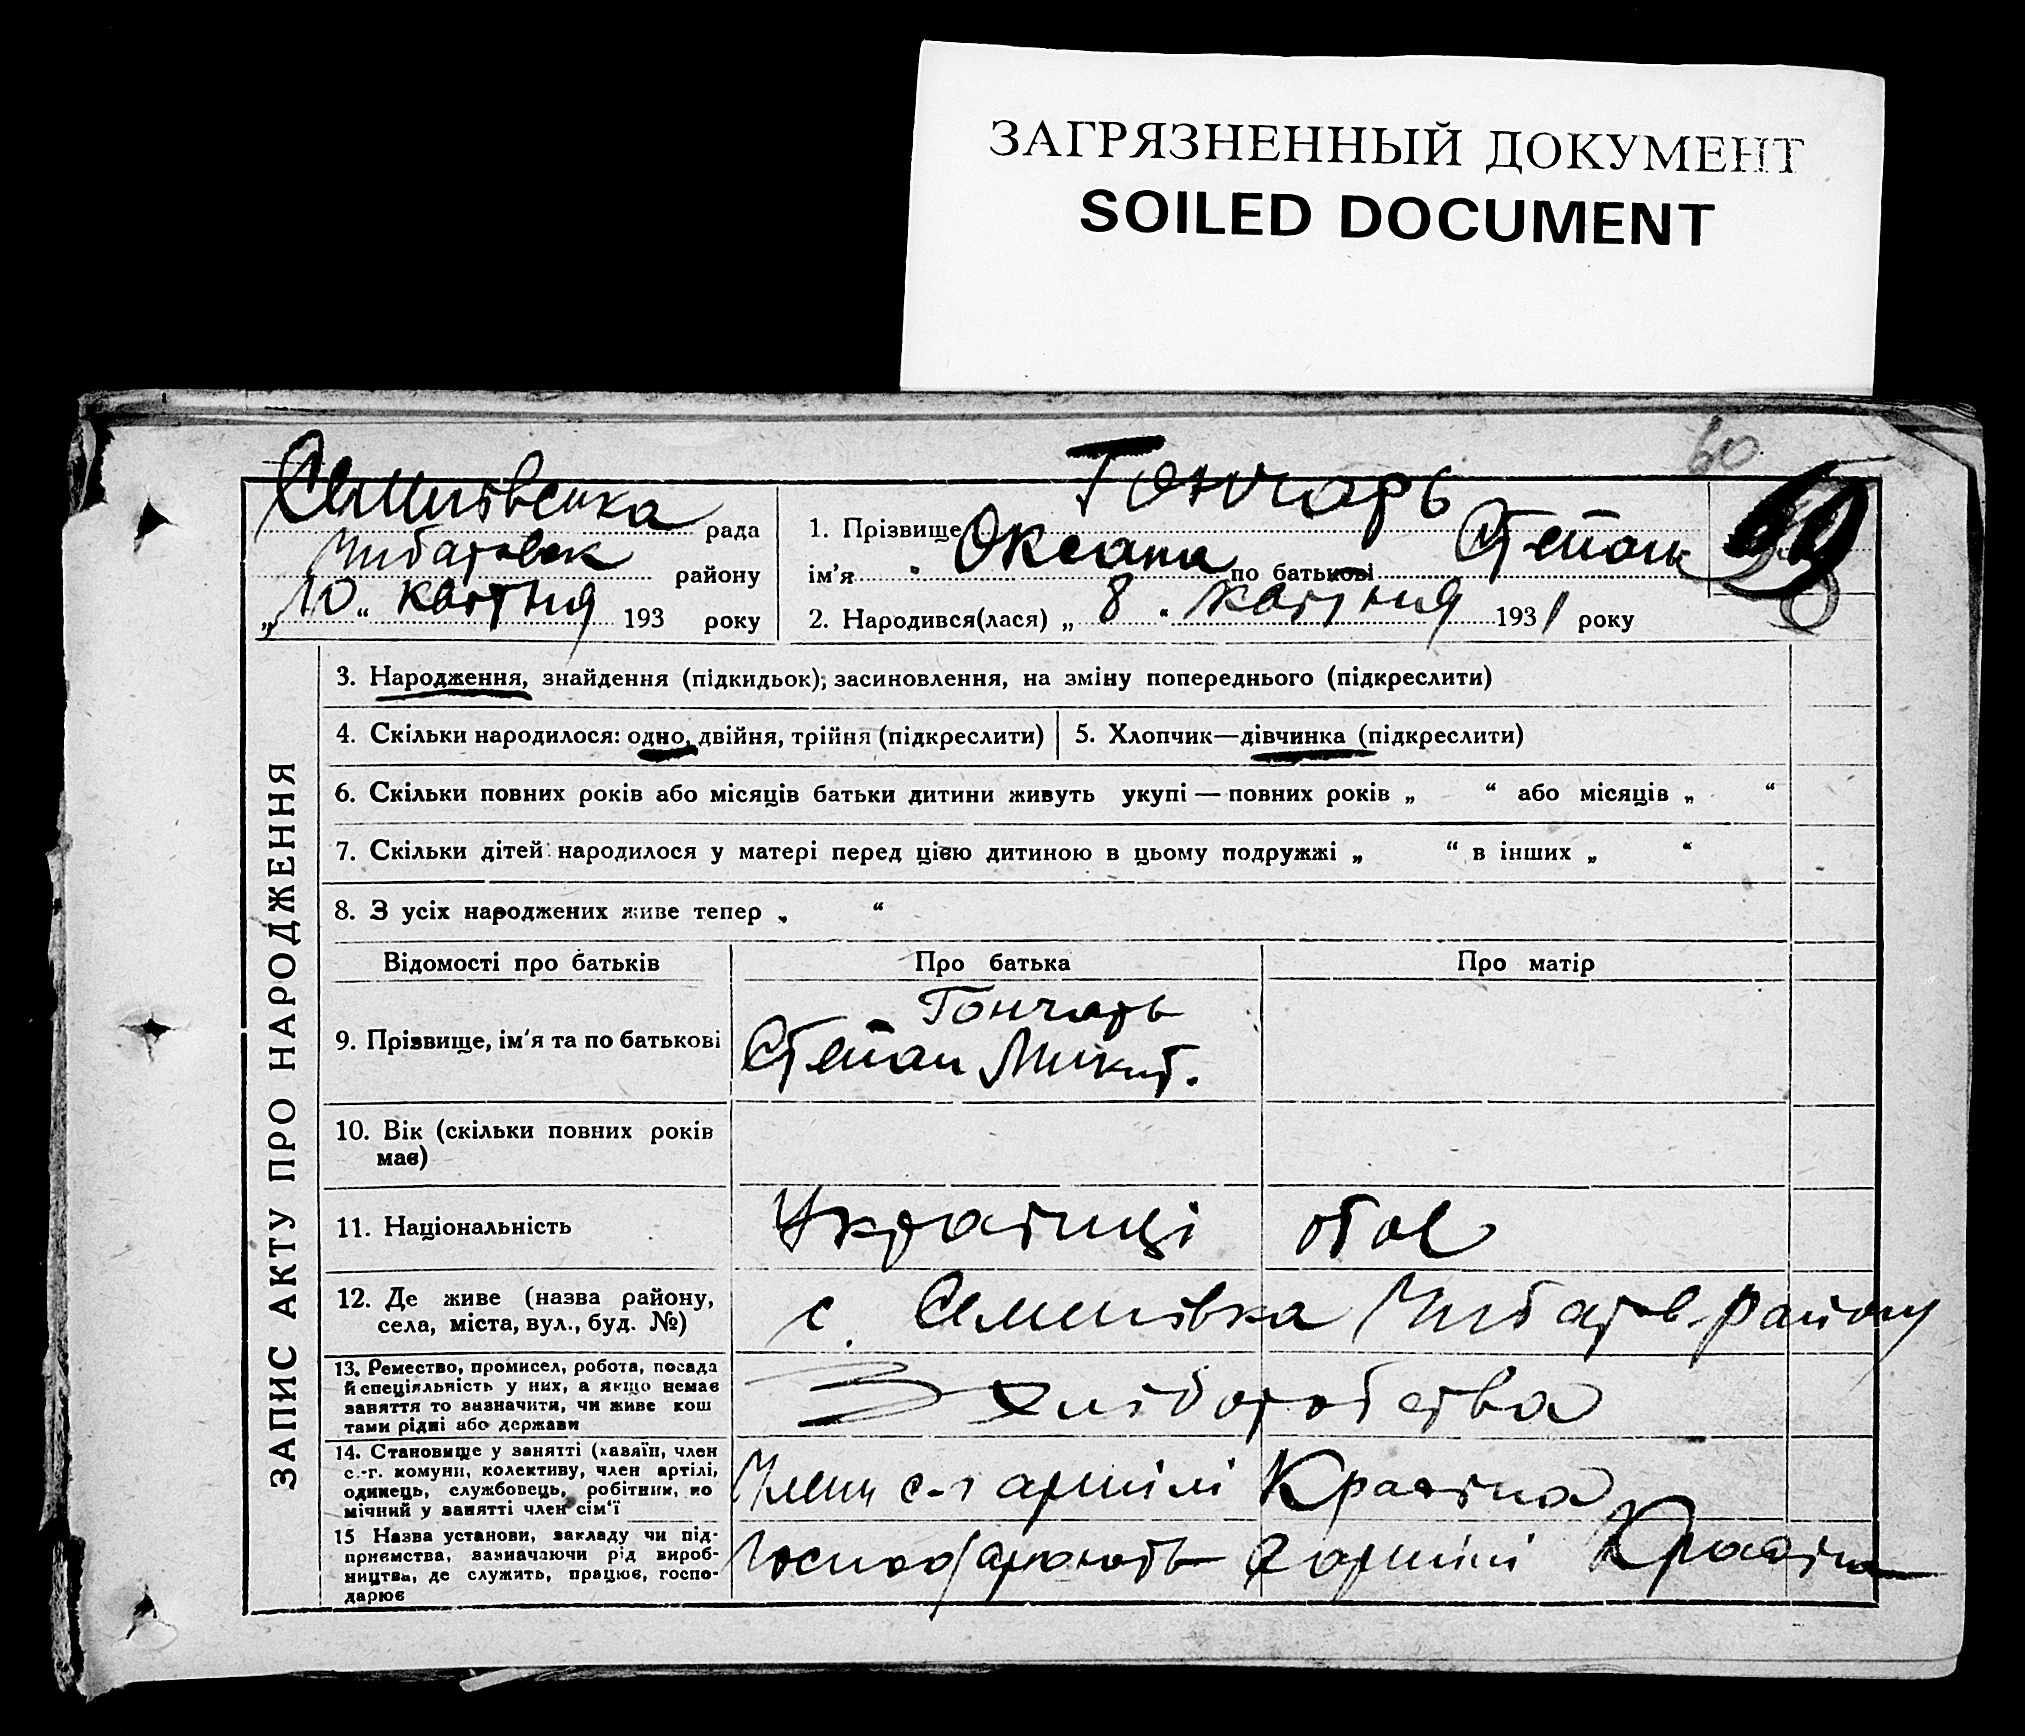 ЗАГРЯЗНЕННЫЙ ДОКУМЕНТ
SOILED DOCUMENT
60
Семинівська рада
району
„10“ квітня 193 року
Гончарь
1. Прізвище
ім'я Оксана по батькові Степан
2. Народився(лася) „8“ квітня 1931 року
ЗАПИС АКТУ ПРО НАРОДЖЕННЯ
3. Народження, знайдення (підкидьок); засиновлення, на зміну попереднього (підкреслити)
4. Скільки народилося: одно, двійня, трійня (підкреслити)
5. Хлопчик—дівчинка (підкреслити)
6. Скільки повних років або місяців батьки дитини живуть укупі — повних років „ “ або місяців „ “
7. Скільки дітей народилося у матері перед цією дитиною в цьому подружжі „ “ в інших „ “
8. З усіх народжених живе тепер „ “
Відомості про батьків Про батька Про матір
9. Прізвище, ім'я та по батькові
Гончарь
Степан Микит.
10. Вік (скільки повних років
має)
11. Національність
Українці обоє
12. Де живе (назва району,
села, міста, вул., буд. №)
с. Семенівка району
13. Ремество, промисел, робота, посада
й спеціяльність у них, а якщо немає
заняття то зазначити, чи живе кош
тами рідні або держави
З хліборобства
14. Становище у занятті (хазяїн, член
с.-г. комуни,колективу, член артілі,
одинець, службовець, робітник, по
мічний у занятті член сім'ї
Члени с-г артілі Країна
15 Назва установи, закладу чи під-
приємства, зазначаючи рід вироб-
ництва, де служить, працює, госпо-
дарює
Господарюють в артілі Країна